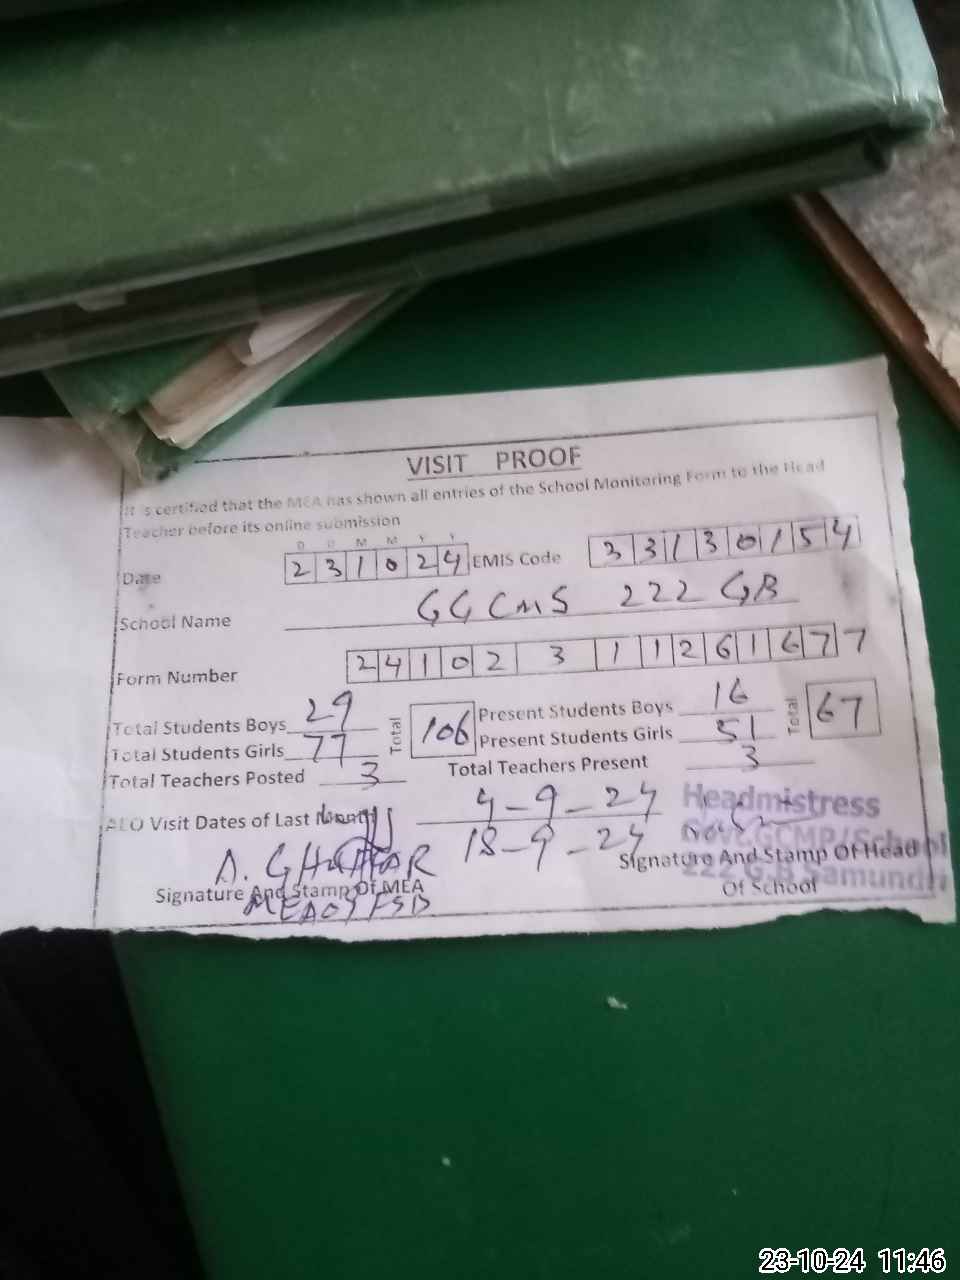 VISIT PROOF
It is certified that the MEA has shown all entries of the School Monitoring Form to the Head
Teacher before its online submission
D D M M Y Y
Date 2 3 1 0 2 4 EMIS Code 3 3 1 3 0 1 5 4
School Name GGCMS 222 GB
Form Number 2 4 1 0 2 3 1 1 2 6 1 6 7 7
Total Students Boys 29 Total 106 Present Students Boys 16 Total 67
Total Students Girls 77 Present Students Girls 51
Total Teachers Posted 3 Total Teachers Present 3
AEO Visit Dates of Last Month 4-9-24
18-9-24
Headmistress
Govt. GCMP/School
222 G.B Samundri
A. GHAFFAR
Signature And Stamp Of MEA
Signature And Stamp Of Head
Of School
23-10-24 11:46